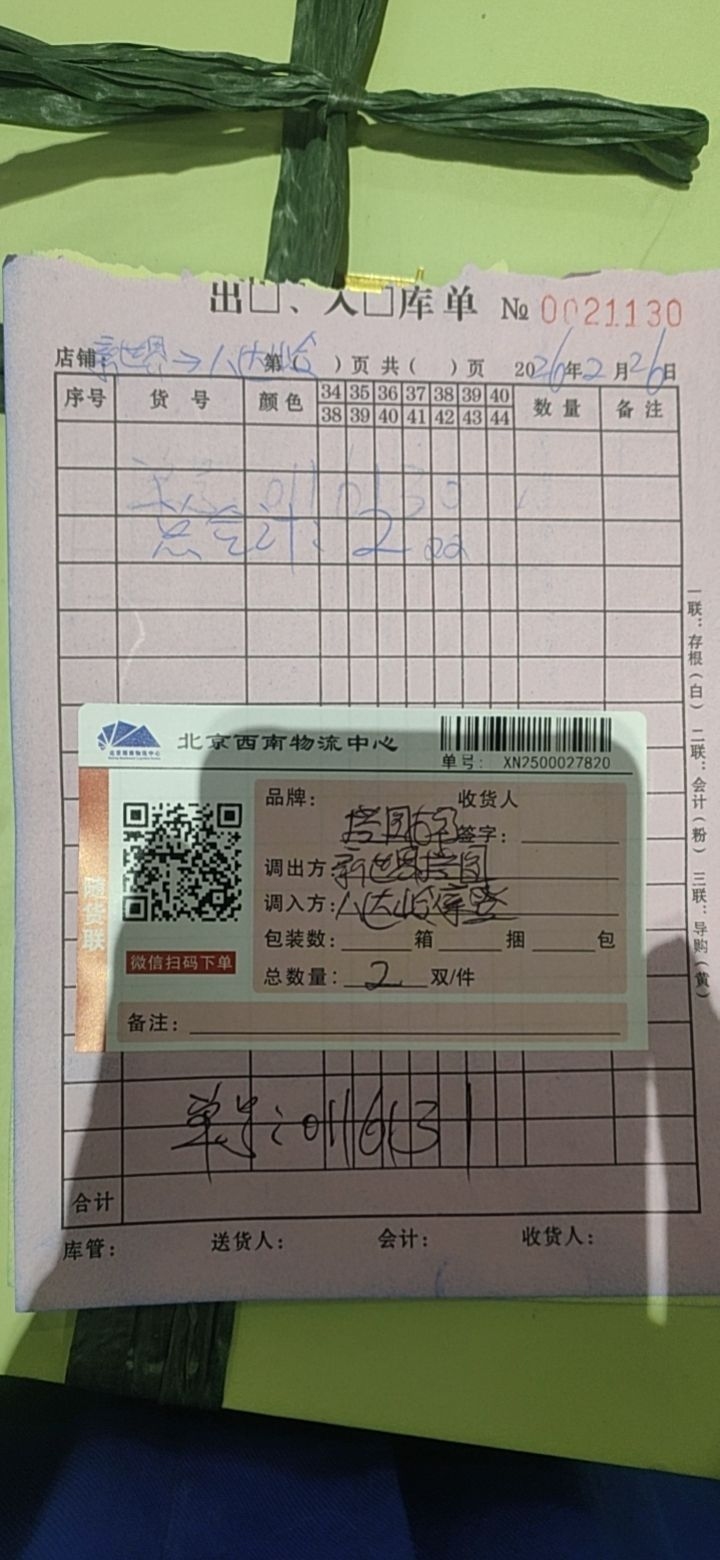 出□、入□库单 № 0021130
店铺 新世界→八达岭 第( )页 共( )页 2026年2月26日
序号 货号 颜色 34 35 36 37 38 39 40 数量 备注
38 39 40 41 42 43 44
总合计: 2
北京西南物流中心
单号: XN2500027820
品牌: 收货人
签字:
调出方: 新世界
调入方: 八达岭
包装数: 箱 捆 包
总数量: 2 双/件
随货联
微信扫码下单
备注:
单号: 0116131
合计
库管: 送货人: 会计: 收货人:
一联:存根(白) 二联:会计(粉) 三联:导购(黄)